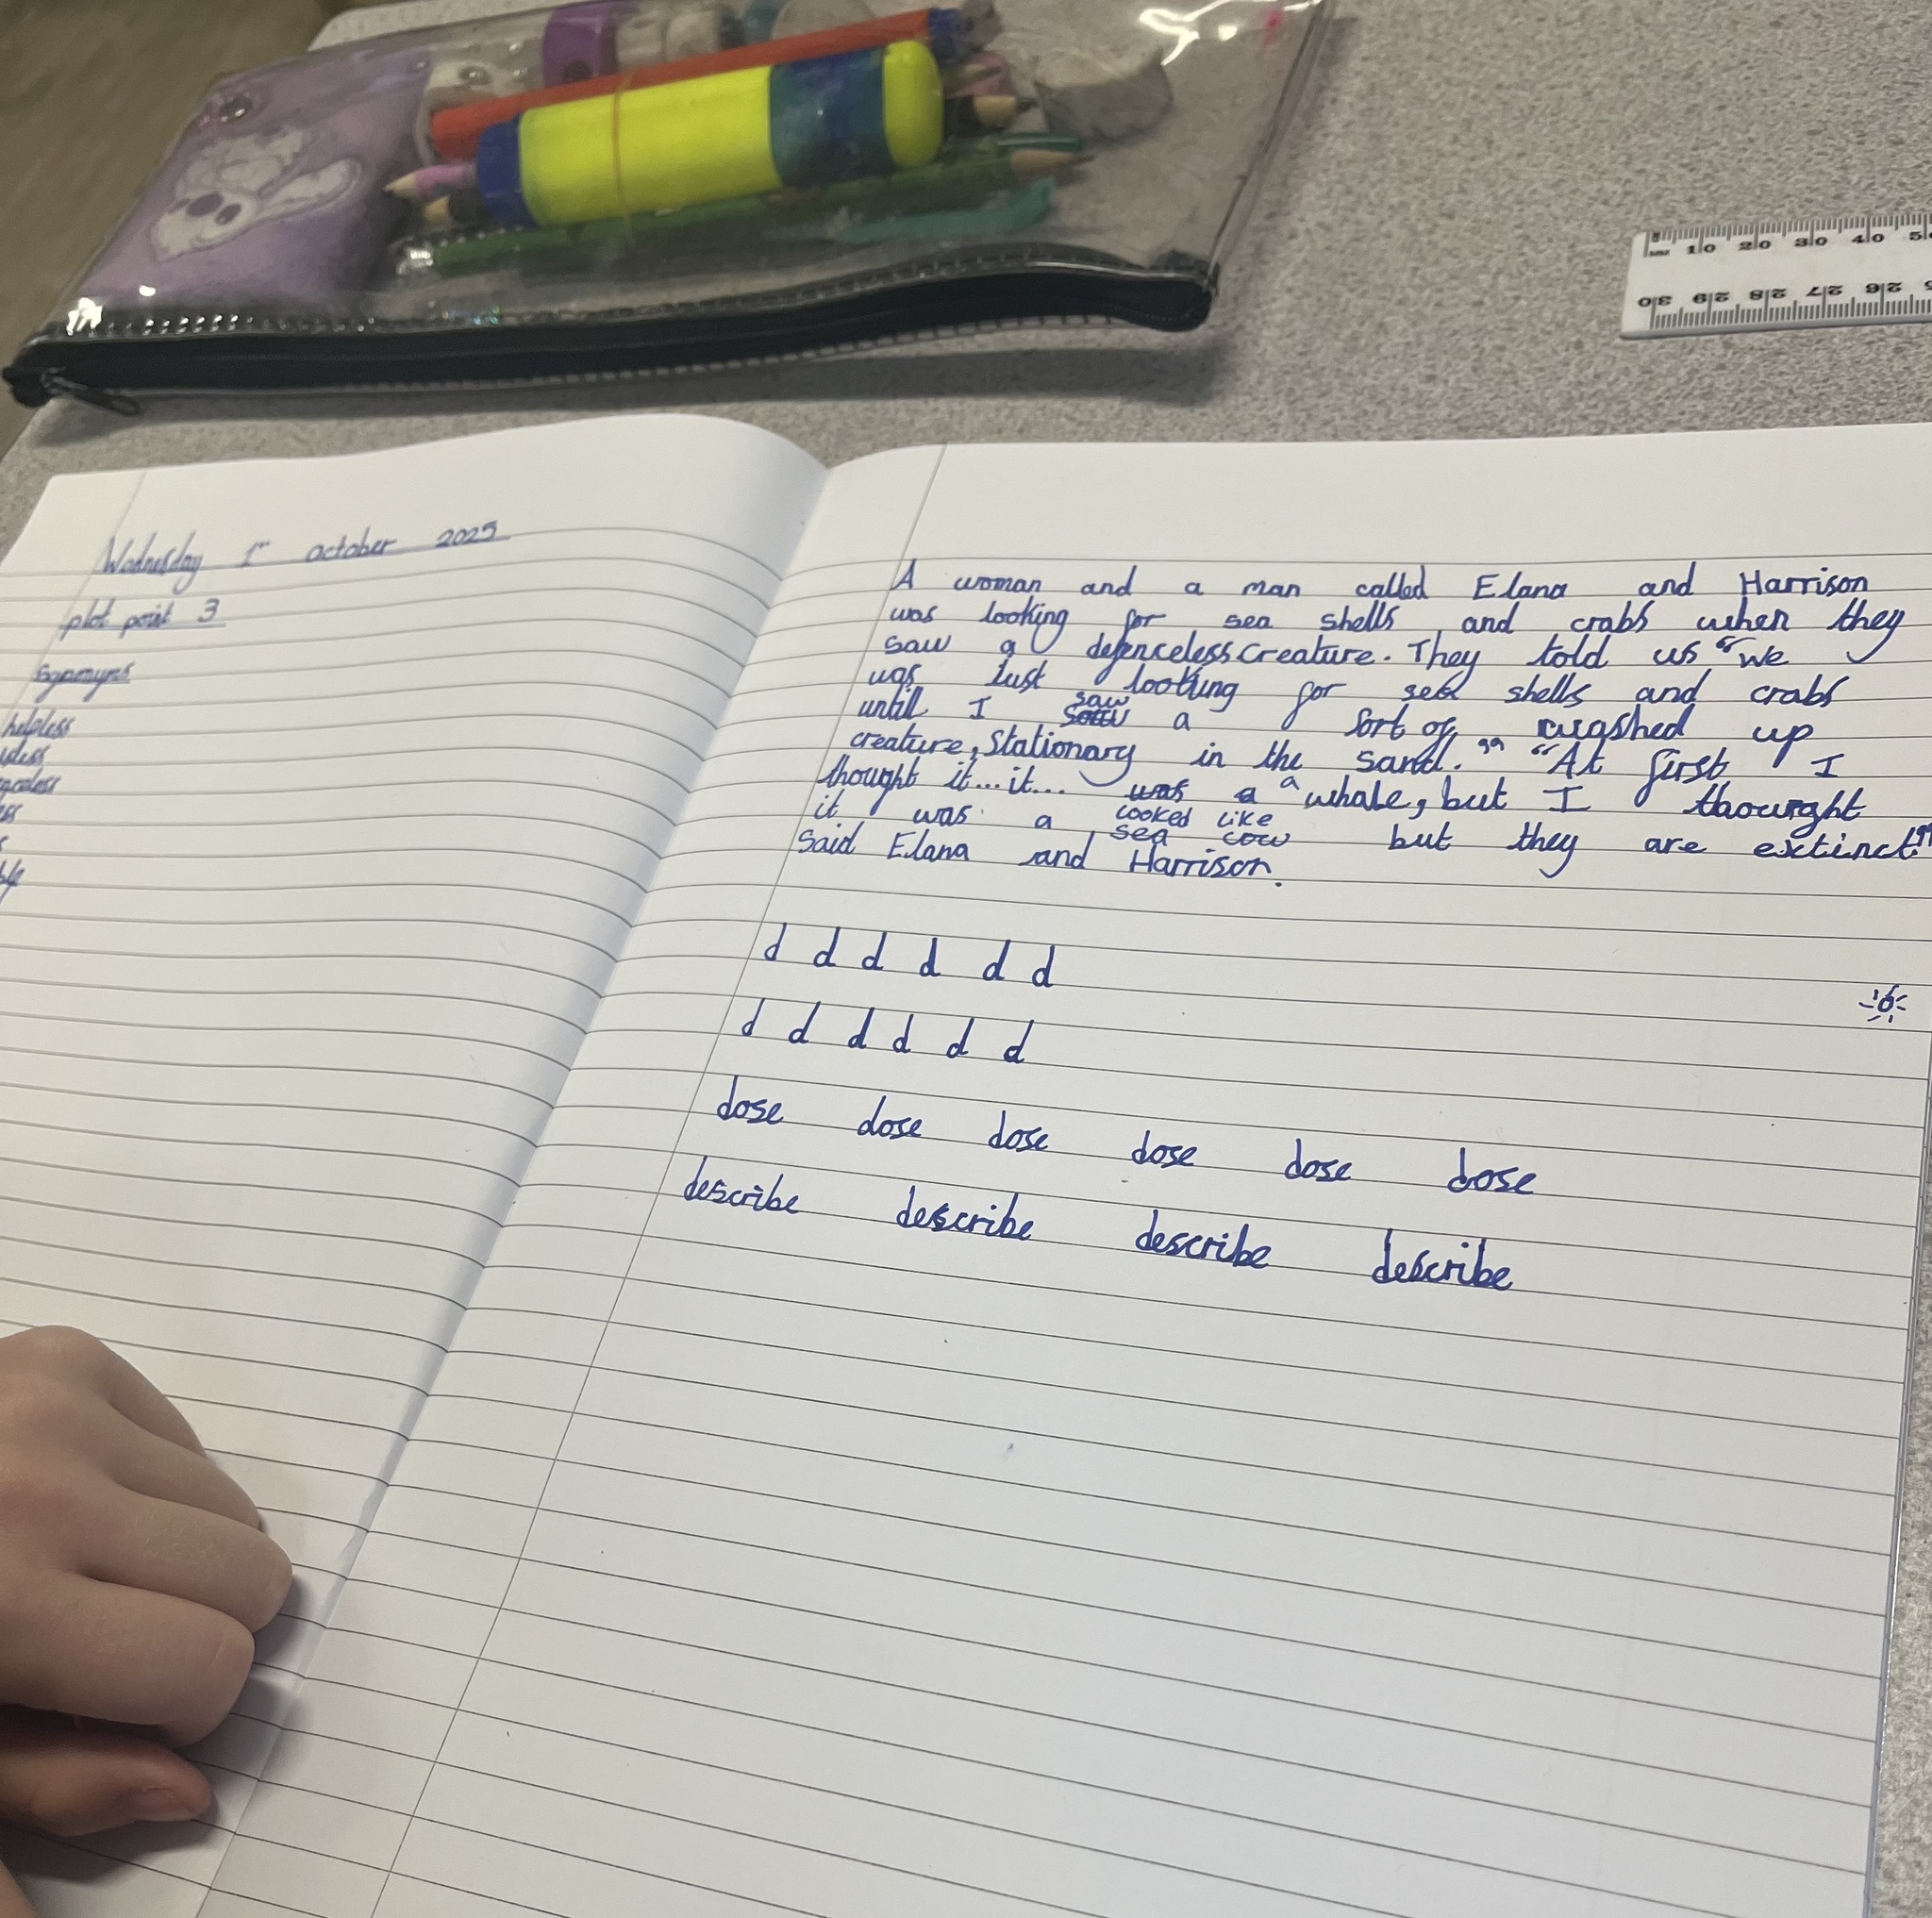 Wednesday 1st october 2025
plot point 3
Synonyms
helpless
A woman and a man called Elana and Harrison
was looking for sea shells and crabs when they
saw a defenceless creature. They told us "We
was just looking for sea shells and crabs
untill I saw a sort of washed up
creature, Stationary in the sand." "At first I
thought it...it... was a whale, but I thought
it was a looked like sea cow but they are extinct!"
said Elana and Harrison.
d d d d d d
d d d d d d
dose dose dose dose dose dose
describe describe describe describe
10 20 30 40
30 29 28 27 26